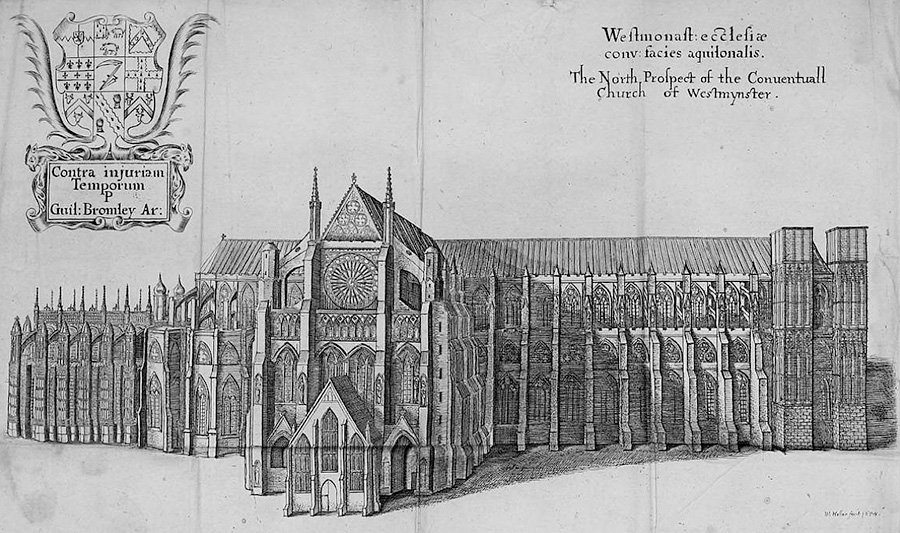 Contra injuriam
Temporum
P
Guil: Bromley Ar:
Westmonast: ecclesiæ
conv: facies aquilonalis.
The North Prospect of the Conventuall
Church of Westmynster.
W. Hollar fecit